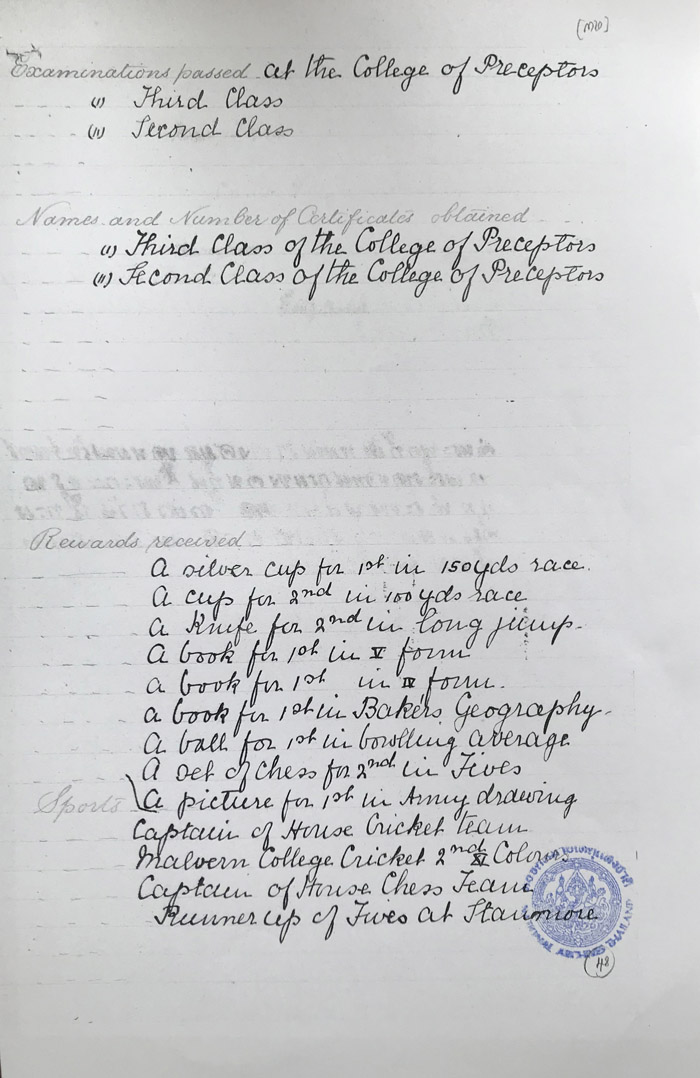 Examinations passed at the College of Preceptors
(i) Third Class
(ii) Second Class
Names and Number of Certificates obtained
(i) Third Class of the College of Preceptors
(ii) Second Class of the College of Preceptors
Rewards received
A silver cup for 1st in 150yds race.
A cup for 2nd in 100yds race
A Knife for 2nd in long jump.
A book for 1st in V form
A book for 1st in IV form.
A book for 1st in Bakers Geography.
A ball for 1st in bowlling average
A set of chess for 2nd in Fives
Sports A picture for 1st in Army drawing
Captain of House Cricket team
Malvern College Cricket 2nd XI Colours
Captain of House Chess Team
Runner up of Fives at Stanmore
48